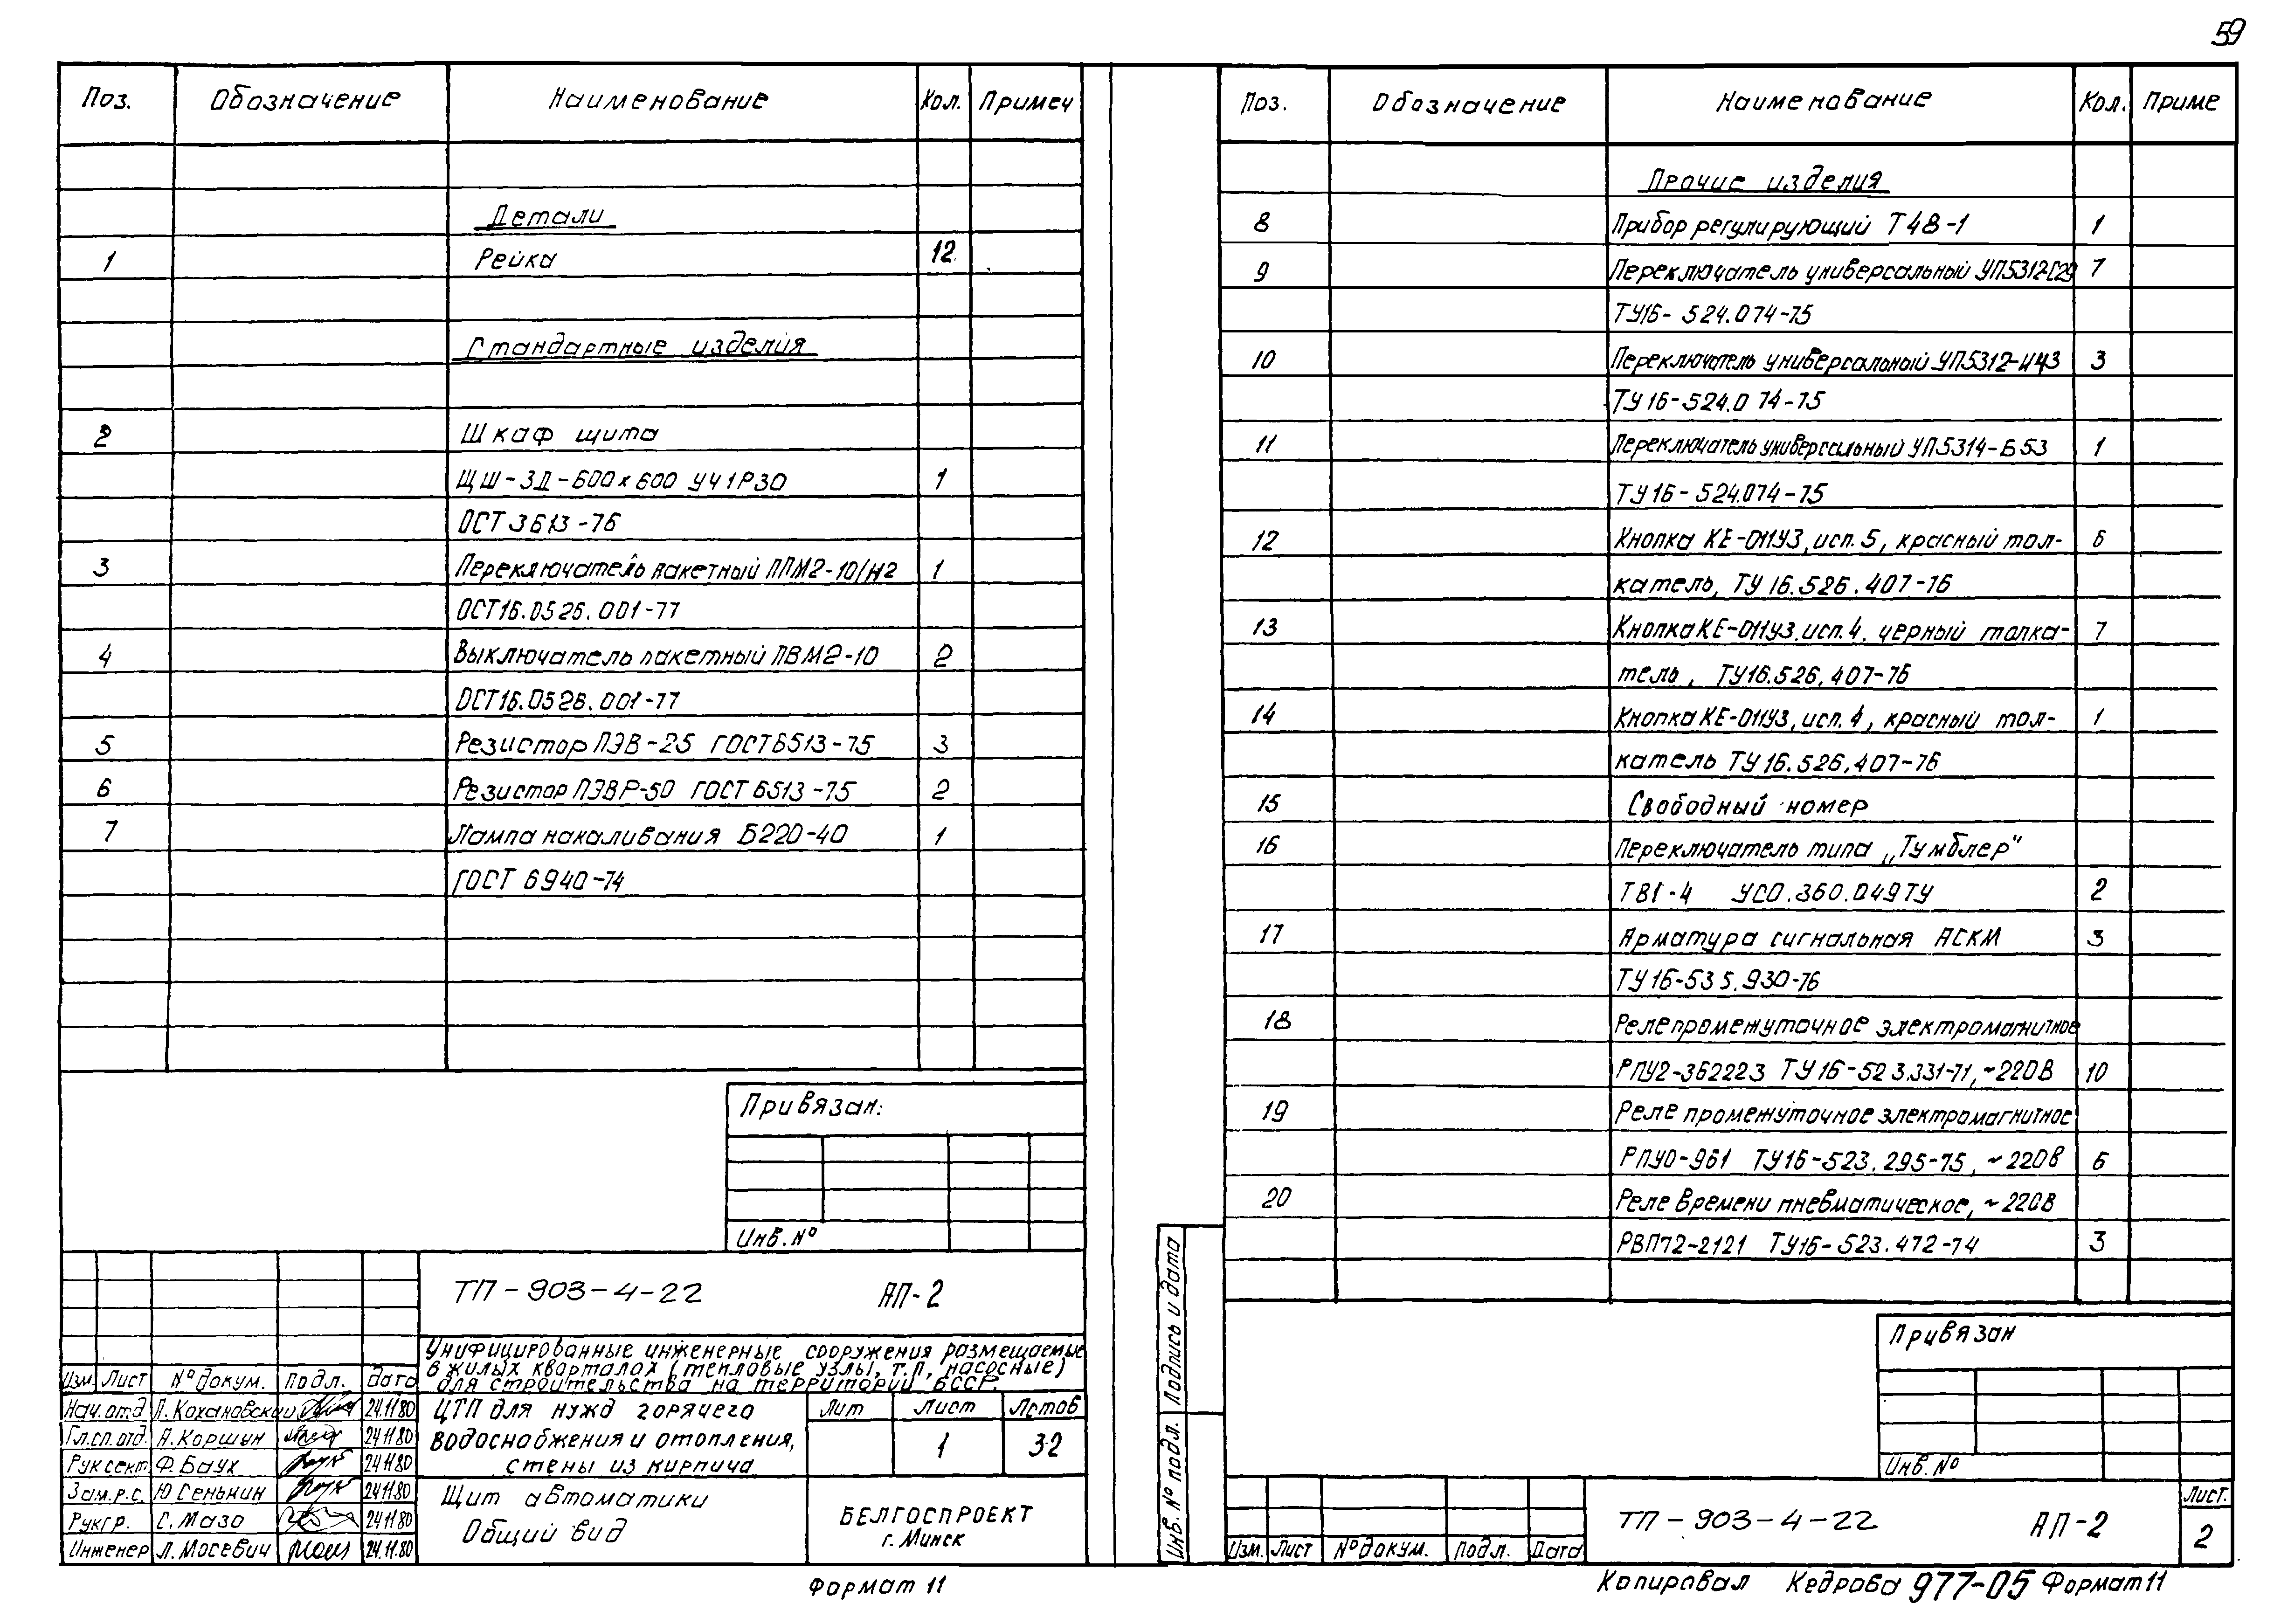 59
Поз. Обозначение Наименование Кол. Примеч
Детали
1 Рейка 12
Стандартные изделия
2 Шкаф щита
ЩШ-ЗД-600х600 УЧ1Р30 1
ОСТ 3613-76
3 Переключатель пакетный ППМ2-10/Н2 1
ОСТ16.0526.001-77
4 Выключатель пакетный ПВМ2-10 2
ОСТ16.0526.001-77
5 Резистор ПЭВ-25 ГОСТ6513-75 3
6 Резистор ПЭВР-50 ГОСТ6513-75 2
7 Лампа накаливания Б220-40 1
ГОСТ 6940-74
Привязан:
Инв.№
ТП-903-4-22 АП-2
Унифицированные инженерные сооружения размещаемые
в жилых кварталах (тепловые узлы, т.п, насосные)
для строительства на территории БССР.
Изм. Лист № докум. Подл. Дата
Нач.отд Л.Кохановский 24.11.80
Гл.сп.отд. А.Коршун 24.11.80
Рук сект. Ф.Баух 24.11.80
Зам.р.с. Ю Сенькин 24.11.80
Рук гр. С.Мазо 24.11.80
Инженер Л.Мосевич 24.11.80
ЦТП для нужд горячего
водоснабжения и отопления,
стены из кирпича
Лит Лист Лстов
1 32
Щит автоматики
Общий вид
БЕЛГОСПРОЕКТ
г. Минск
Формат 11
Поз. Обозначение Наименование Кол. Приме
Прочие изделия
8 Прибор регулирующий Т48-1 1
9 Переключатель универсальный УП5312-С29 7
ТУ16-524.074-75
10 Переключатель универсальный УП5312-И43 3
ТУ16-524.074-75
11 Переключатель универсальный УП5314-Б53 1
ТУ16-524.074-75
12 Кнопка КЕ-011У3, исп.5, красный тол- 6
катель, ТУ 16.526.407-76
13 Кнопка КЕ-011У3. исп.4. черный толка- 7
тель, ТУ16.526.407-76
14 Кнопка КЕ-011У3, исп.4, красный тол- 1
катель ТУ16.526.407-76
15 Свободный номер
16 Переключатель типа „Тумблер"
ТВ1-4 УСО.360.049ТУ 2
17 Арматура сигнальная АСКМ 3
ТУ16-535.930-76
18 Реле промежуточное электромагнитное
РПУ2-362223 ТУ16-523.331-71, ~220В 10
19 Реле промежуточное электромагнитное
РПУ0-961 ТУ16-523.295-75, ~220В 6
20 Реле времени пневматическое, ~220В
РВП72-2121 ТУ16-523.472-74 3
Привязан
Инв.№
Подпись и дата
Инв. № подл.
ТП-903-4-22 АП-2
Лист.
2
Изм. Лист № докум. Подл. Дата
Копировал Кедрова 977-05 Формат 11